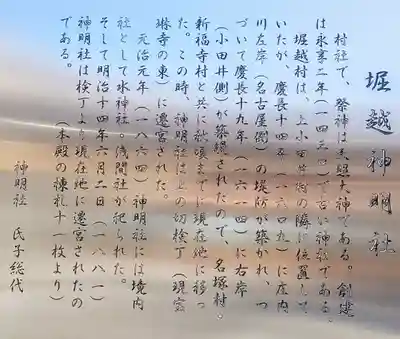 堀越神明社
村社で、祭神は天照大神である。創建
は永享二年(一四三〇)で古い神社である。
堀越村は、上小田井街の隣に位置して
いたが、慶長十四年(一六〇九)に庄内
川左岸(名古屋側)の堤防が築かれ、つ
づいて慶長十九年(一六一四)に右岸
(小田井側)が築線されたので、名塚村・
新福寺村と共に秋頃までに現在地に移っ
た。この時、神明社は上の切検丁(現宝
琳寺の東)に遷宮された。
元治元年(一八六四)神明社には境内
社として水神社。浅間社が祀られた。
そして明治十四年六月二日(一八八一)
神明社は検丁より現在地に遷宮されたの
である。
(本殿の棟札十一枚より)
神明社 氏子総代